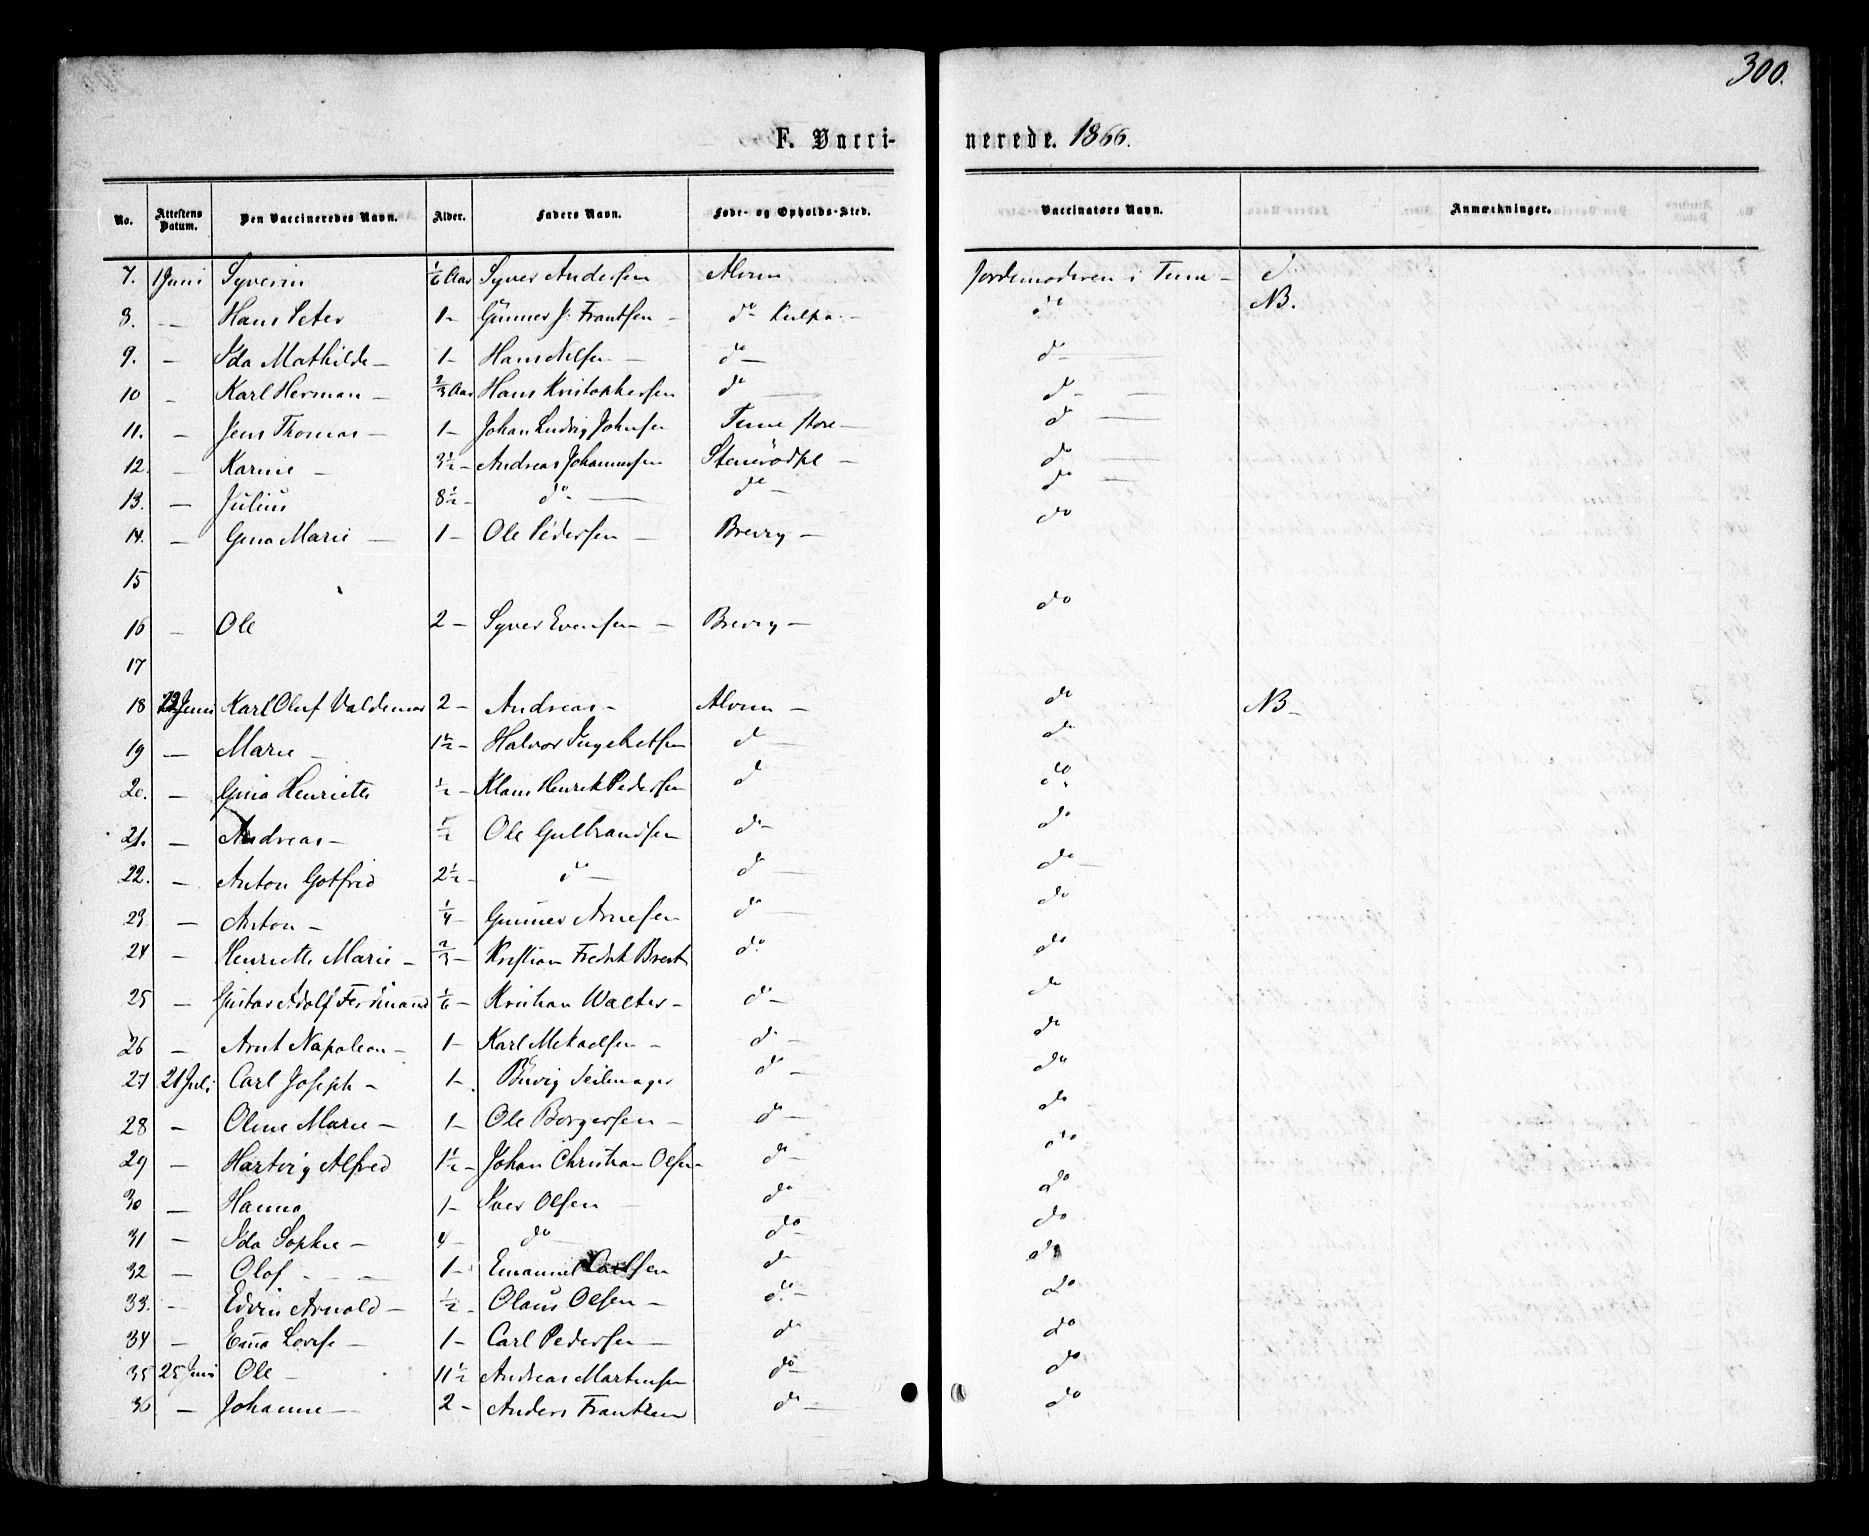 300.
F. Vacci-nerede. 1866.
No. Attestens Datum. Den Vaccineredes Navn. Alder. Faders Navn. Føde- og Opholds-Sted. Vaccinators Navn. Anmærkninger.
7. 1 Juni Syverin 1/6 Aar Syver Andersen Alvim Jordemoderen i Tune -
8. - Hans Peter 1 - Gunner J. Frantsen - do Kulpe - do NB.
9. - Ida Mathilde - 1 - Hans Nilsen - do - do -
10 - Karl Herman - 2/3 Aar Hans Kristophersen do do -
11. - Jens Thomas - 1 - Johan Ludvig Johnsen Tune store - do
12. - Karine - 3 1/2 - Andreas Johannesen Stenrødpl - do
13. - Julius 8 1/2 - do - do - do
14. - Gina Marie - 1 - Ole Pedersen - Brevig - do
15
16 - Ole 2 - Syver Evensen - Brevig - do
17
18 22 Juni Karl Oluf Valdemar 2 - Andreas - Alvim - do NB -
19 - Marie - 1 1/2 - Halvor Ingebretsen do - do
20. - Gina Henriette 1/2 - Klaus Henrik Pedersen do do
21. - Andreas - 1/2 Ole Gulbrandsen do - do
22. - Anton Gotfried 2 1/2 - do - do - do -
23 - Anton - 1/4 - Gunner Arnesen do - do
24 - Henriette Marie - 2/3 - Kristian Fredrik do do
25 - Gustav Adolf Ferdinand 1/6 - Kristian Walter - do - do
26 - Arnt Napoleon - 1 - Karl Mekaelsen - do - do
27 21 Juli Carl Joseph - 1 - Seilmager do - do
28 - Oline Marie - 1 - Ole Borgersen - do - do
29 - Hartvig Alfred 1 1/2 - Johan Christian Olsen - do - do
30 - Hanna 1 - Iver Olsen do do
31 - Ida Sophie - 4 - do do - do
32 - Olof - 1 - Emanuel Carlsen do - do
33. - Edvin Arnold - 1/2 - Olaus Olsen - do - do
34 - Emma Lovise - 1 - Carl Pedersen - do do
35 25 Juni Ole - 11 1/2 Andreas Martinsen do - do
36 - Johanne - 2 - Anders Frantzen do - do